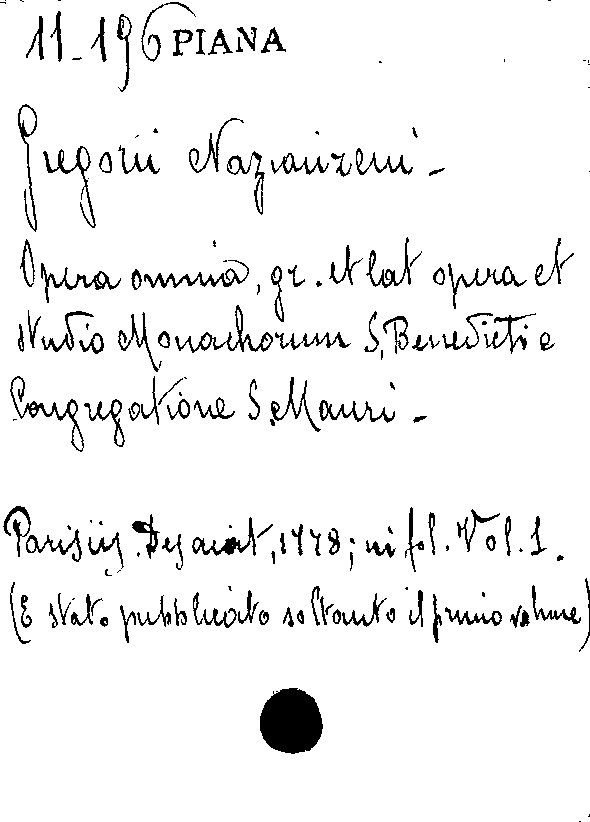 11-196 PIANA
Gregorii Nazianzeni -
Opera omnia, gr. et lat opera et
studio Monachorum S. Benedicti e
Congregatione S. Mauri -
Parisiis. Desaint, 1778; in fol. Vol. 1.
(E stato pubblicato soltanto il primo volume)